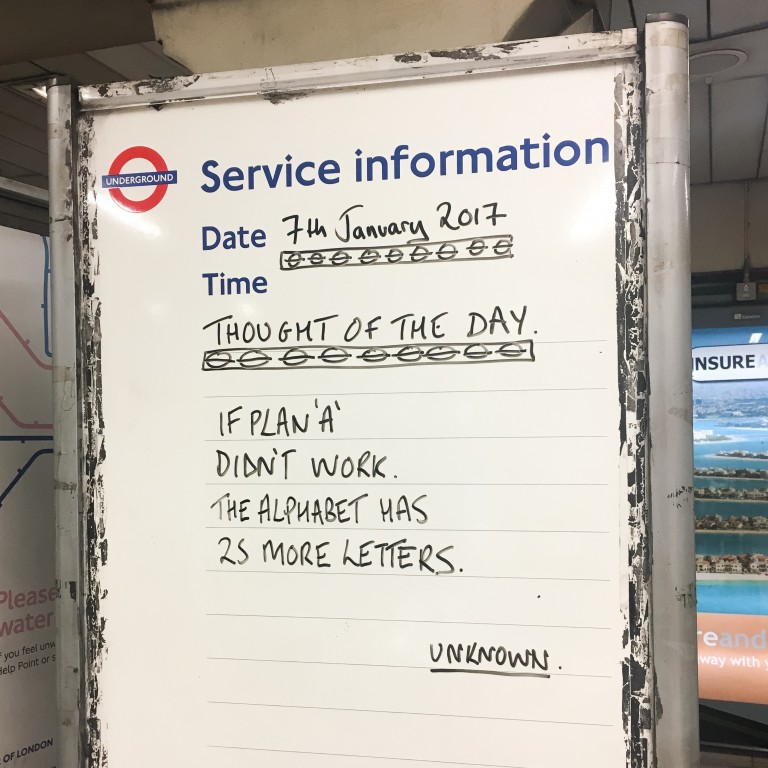 UNDERGROUND
Service information
Date 7th January 2017
Time
THOUGHT OF THE DAY.
IF PLAN 'A'
DIDN'T WORK.
THE ALPHABET HAS
25 MORE LETTERS.
UNKNOWN.
Please
water
you feel
Help Point or
OF LONDON
NSURE
way with